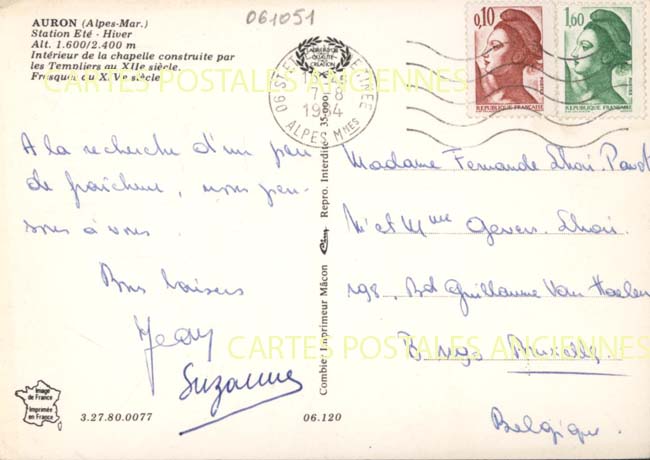 061051
AURON (Alpes-Mar.)
Station Eté - Hiver
Alt. 1.600/2.400 m
Intérieur de la chapelle construite par
les Templiers au XIIe siècle.
Fresques du XVe siècle
CARTES POSTALES ANCIENNES
06 ST ET
7-8
1984
ALPES Mmes
LABEUR DE
QUALITE
CREATION
0,10
REPUBLIQUE FRANÇAISE
1,60
REPUBLIQUE FRANÇAISE
A la recherche d'un peu
de fraîcheur, nous pen-
sons à vous
Bons baisers
Jean
Suzanne
Combier Imprimeur Mâcon
Repro. Interdite
Madame Fernande
Mr et Mme
198, Bd Guillaume Van Haelen
Bruxelles
Belgique
CARTES POSTALES ANCIENNES
Image
de France
Imprimée
en France
3.27.80.0077
06.120